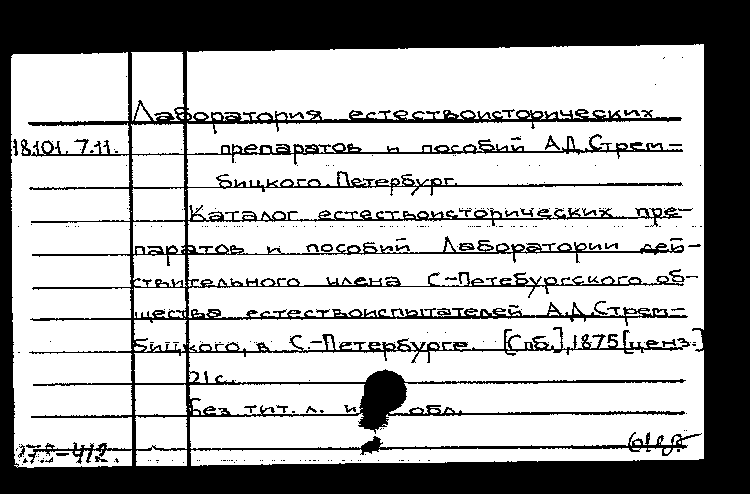 Лаборатория естествоисторических
18101.7.11. препаратов и пособий А.Д.Стрем-
бицкого. Петербург.
Каталог естествоисторических пре-
паратов и пособий Лаборатории дей-
ствительного члена С-Петебургского об-
щества естествоиспытателей А.Д.Стрем-
бицкого, в С.-Петербурге. [Спб.], 1875 [ценз.]
21 с.
Без тит. л. и обл.